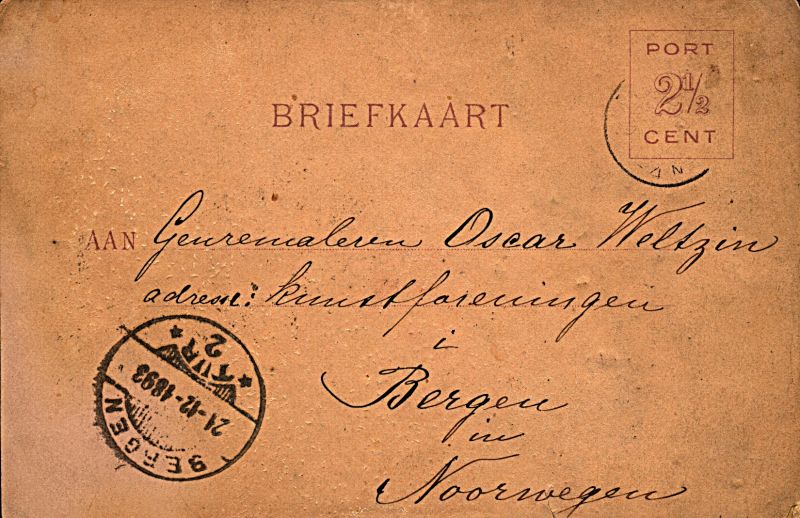 PORT
2½
CENT
BRIEFKAART
AN
AAN Genremaleren Oscar Weltzin
adresse: kunstforeningen
i
Bergen
in
Noorwegen
TUR
2
21-12-1893
BERGEN